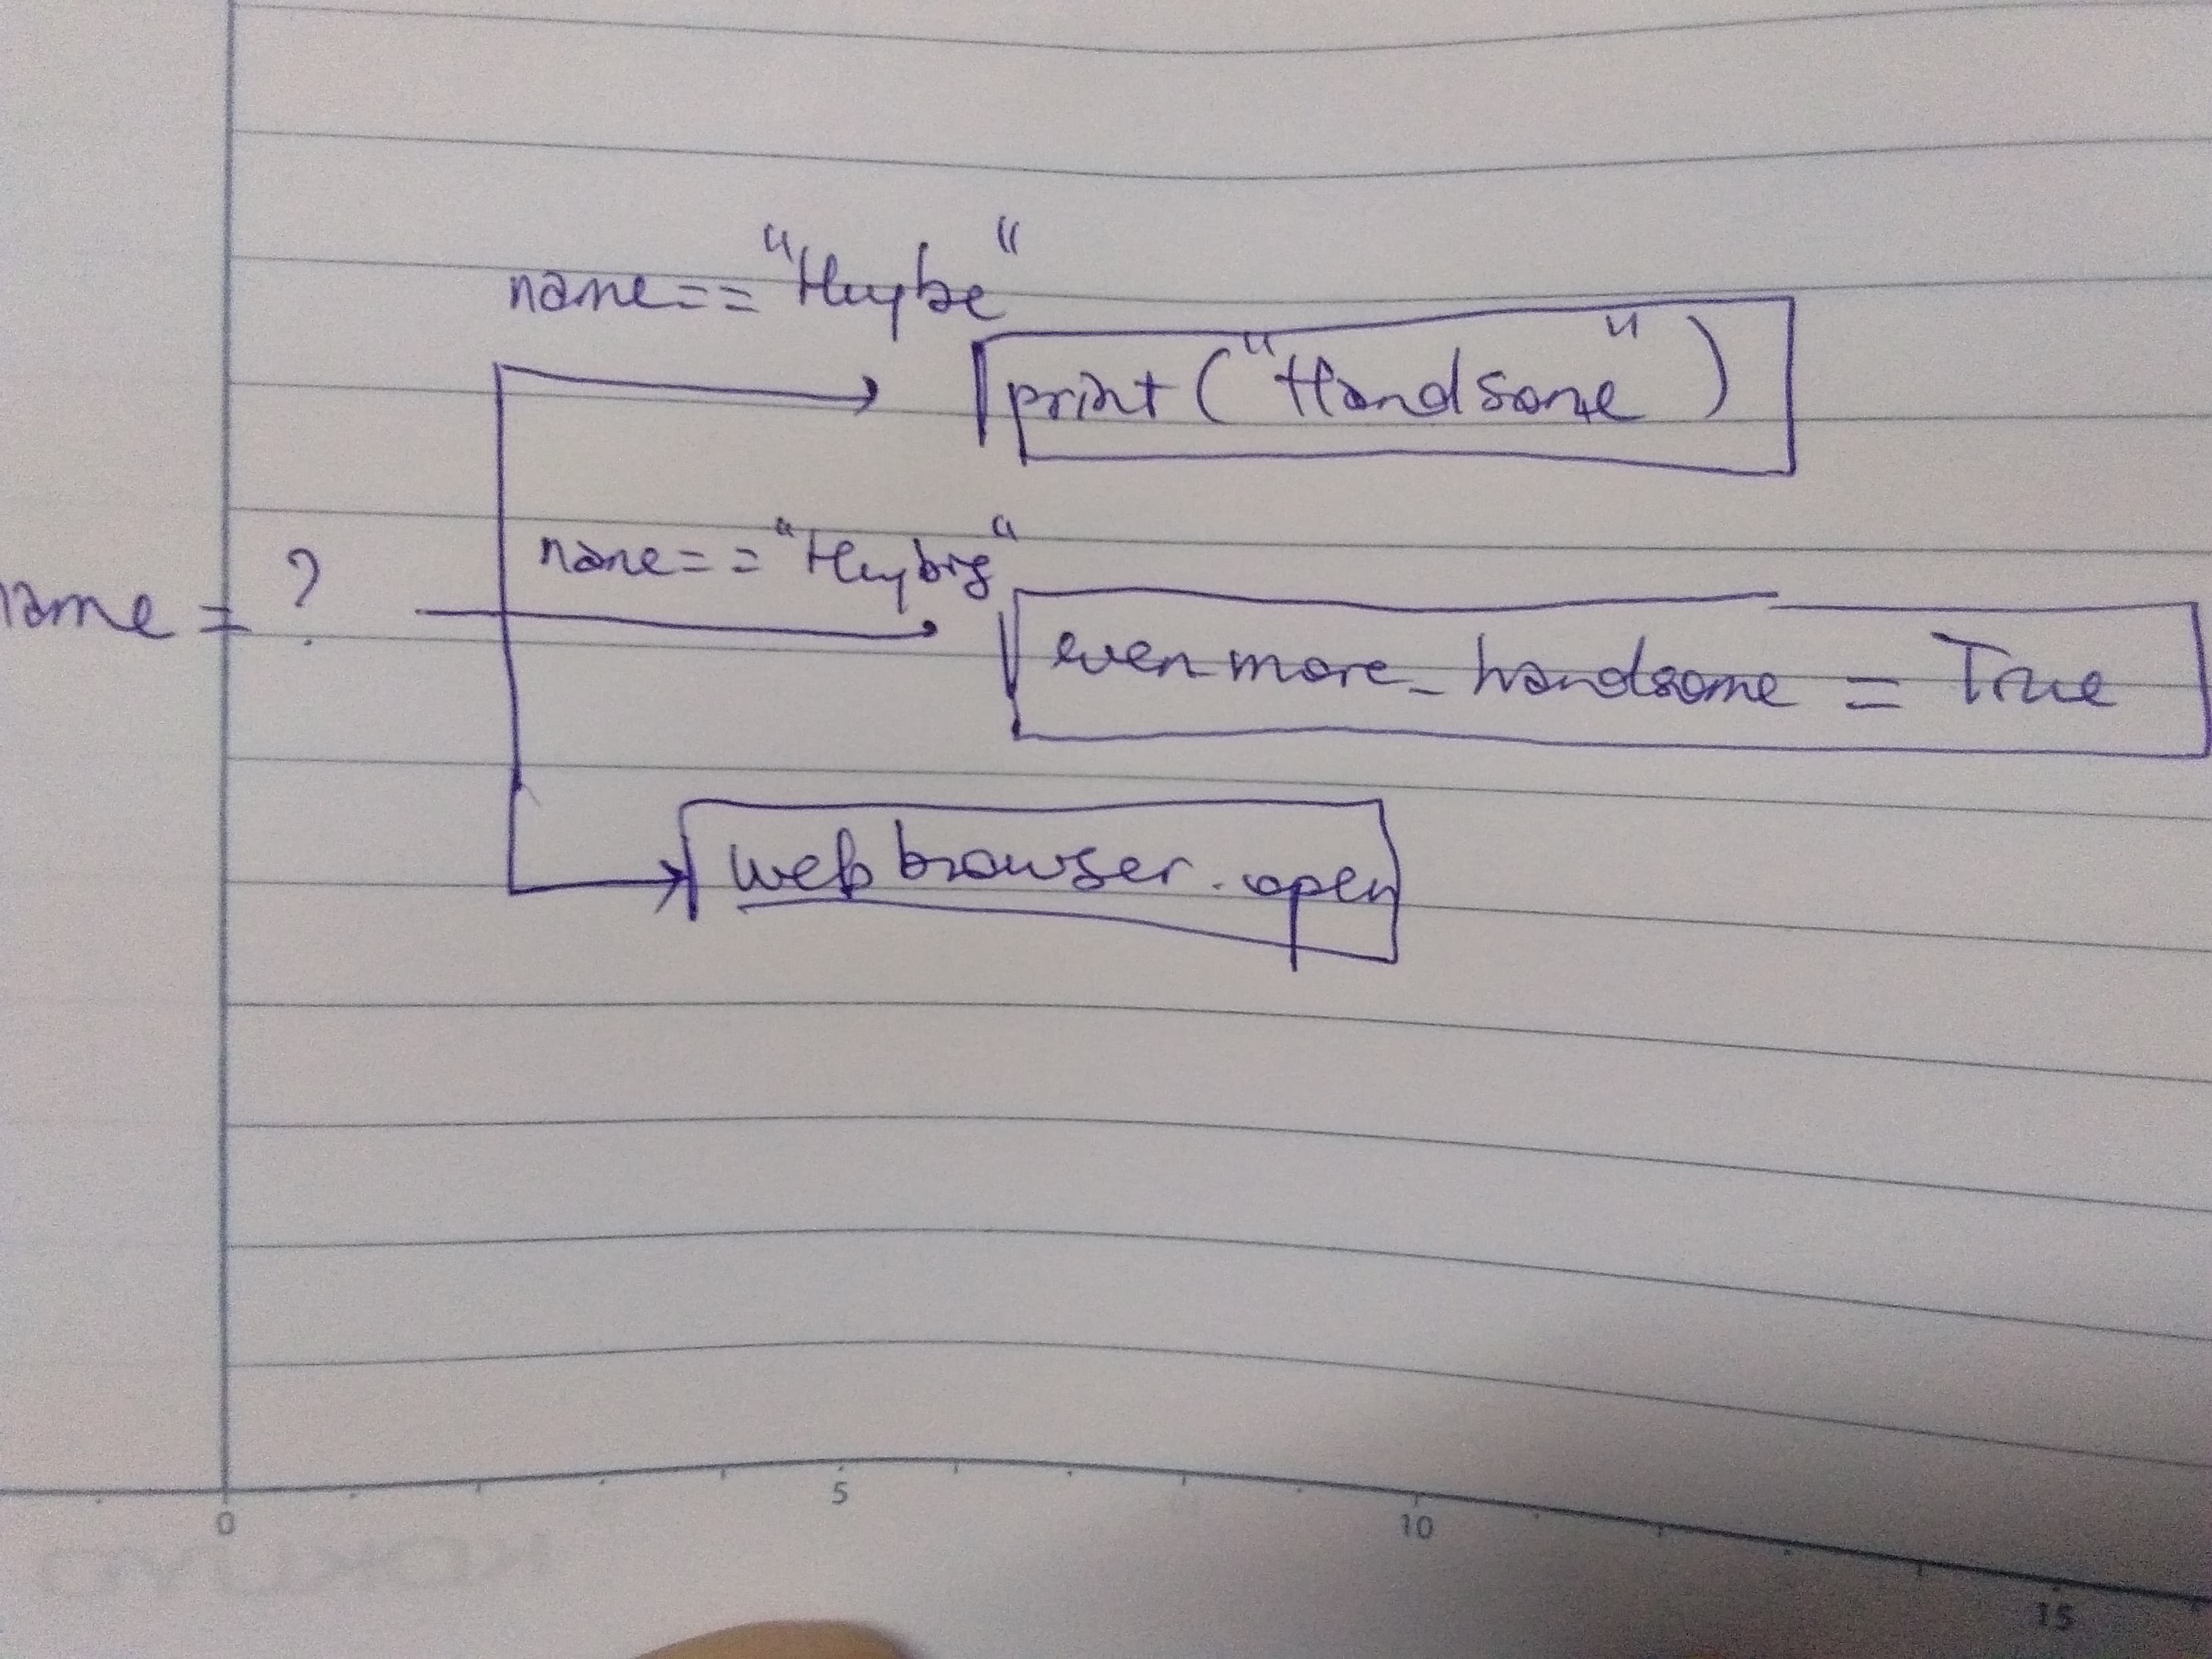 name == "Huybe"
print ("Handsome")
name == "Huybig"
name = ?
evenmore_handsome = True
webbrowser.open
0 5 10 15
KOKUYO